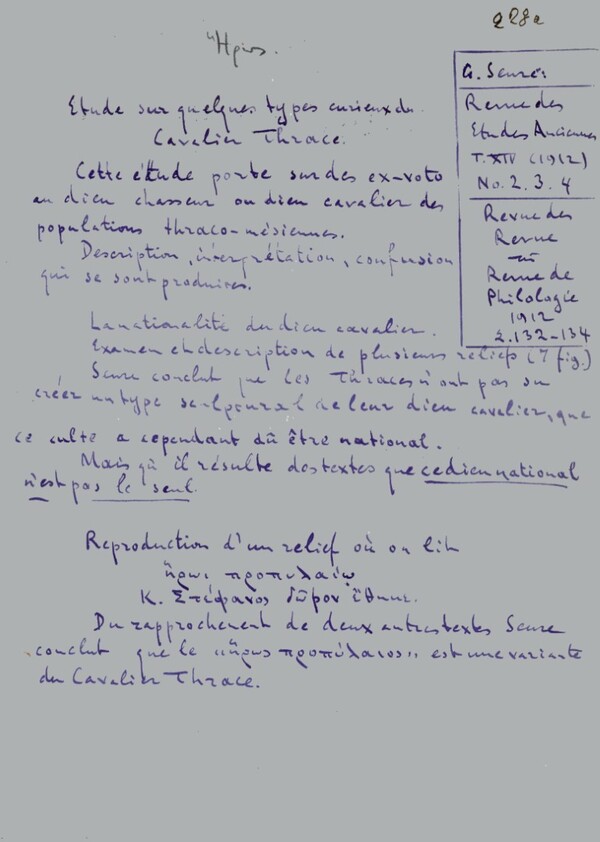 228a
Ἥρως.
G. Seure:
Revue des
Etudes Anciennes
T. XIV (1912)
No. 2. 3. 4
Revue des
Revue
Revue de
Philologie
1912
2. 132-134
Etude sur quelques types curieux du
Cavalier Thrace.
Cette étude porte sur des ex-voto
au dieu chasseur ou dieu cavalier des
populations thraco-mésiennes.
Description, interprétation, confusion
qui se sont produires.
La nationalité du dieu cavalier.
Examen et description de plusieurs reliefs (7 fig.)
Seure conclut que les Thraces n'ont pas su
créer un type sculptural de leur dieu cavalier, que
ce culte a cependant dû être national.
Mais qu'il résulte des textes que ce dieu national
n'est pas le seul.
Reproduction d'un relief où on lit
ἥρωι προπυλαίῳ
Κ. Στέφανος δῶρον ἔθηκε.
Du rapprochement de deux autres textes Seure
conclut que le «ἥρως προπύλαιος» est une variante
du Cavalier Thrace.